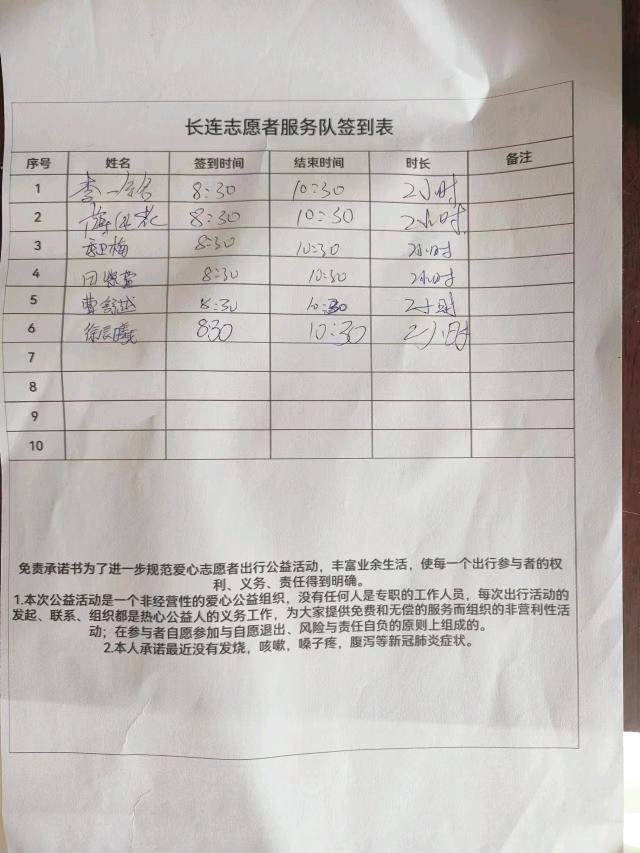 长连志愿者服务队签到表
序号 姓名 签到时间 结束时间 时长 备注
1 李一名 8:30 10:30 2小时
2 8:30 10:30 2小时
3 8:30 10:30 2小时
4 8:30 10:30 2小时
5 曹 8:30 10:30 2小时
6 徐辰曦 8:30 10:30 2小时
7
8
9
10
免责承诺书为了进一步规范爱心志愿者出行公益活动，丰富业余生活，使每一个出行参与者的权
利、义务、责任得到明确。
1.本次公益活动是一个非经营性的爱心公益组织，没有任何人是专职的工作人员，每次出行活动的
发起、联系、组织都是热心公益人的义务工作，为大家提供免费和无偿的服务而组织的非营利性活
动；在参与者自愿参加与自愿退出、风险与责任自负的原则上组成的。
2.本人承诺最近没有发烧，咳嗽，嗓子疼，腹泻等新冠肺炎症状。